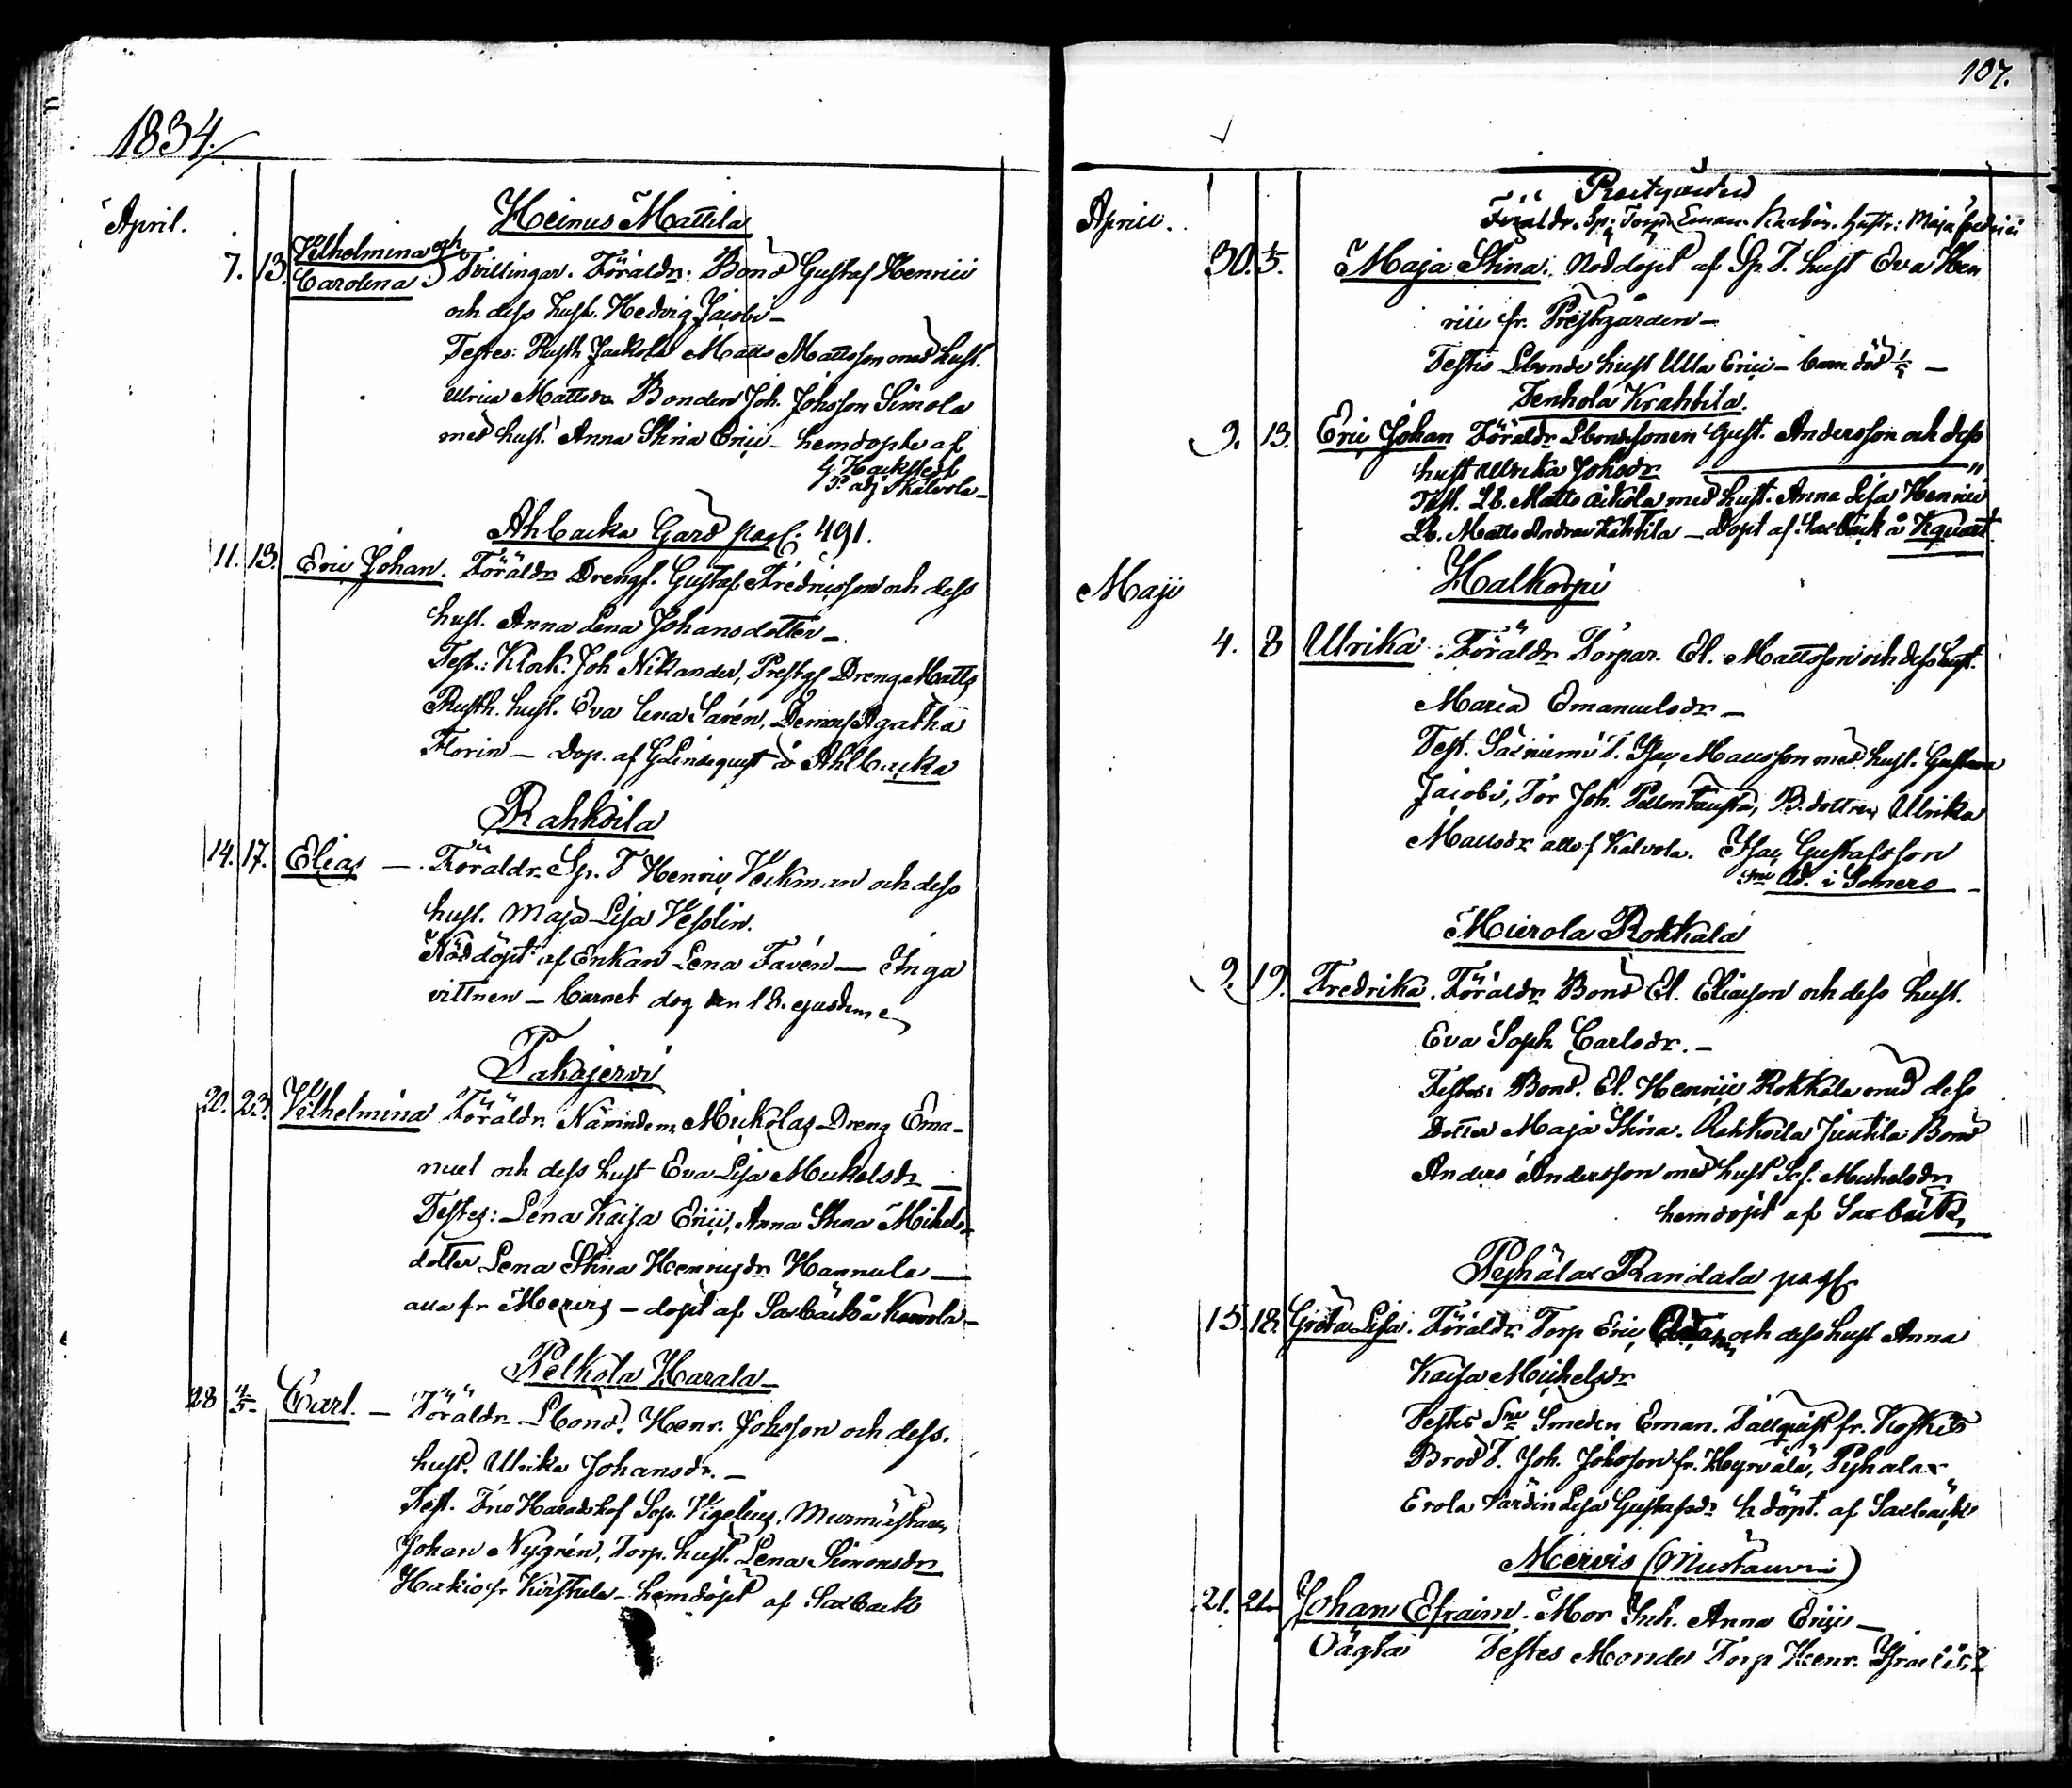 1834.
April.
Heinus Mattila
7. 13. Vilhelmina och
Carolina Tvillingar. Föräldr: Bond Gustaf Henrici
och dess hust. Hedvig Jacobi –
Testes: Rusth Jackola Matts Mattsson med hust.
Ulrica Mattsdr Bonden Joh. Johsson Simola
med hust. Anna Stina Erici – hemdopte af
G. Hackstedt
P. adj i Kalvola –
Ahlbacka Gård pag. 491.
11. 13. Eric Johan. Föräldr Drengs. Gustaf Fredricsson och dess
hust. Anna Lena Johansdotter –
Test.: Klock. Joh Nikander, Prestgs Dreng Matts
Rusth. hust. Eva Lena Saxén, Demois Agatha
Florin – Dop. af G Lindequist å Ahlbacka
Rahkoila
14. 17. Elias – Föräldr. Sp. T Henric Veckman och dess
hust. Maja Lisa Veslin.
Nöddöpt af Enkan Lena Favén – Inga
vittnen – Barnet dog den 18. ejusdem
Takajervi
20. 23. Vilhelmina Föräldr. Nämndem. Mickolas Dreng Ema-
nuel och dess hust Eva Lisa Michelsdr –
Testes: Lena Kaisa Erici, Anna Stina Michels-
dotter Lena Stina Henricsdr Hannula –
alla fr Mervis – döpt af Saxbäck å
Pelkola Harala –
28 4/5 Carl. – Föräldr. Lbond. Henr. Johsson och dess.
hust. Ulrika Johansdr. –
Test. Sop. Vigelius, Murmästaren
Johan Nygrén, Torp. hust. Lena Simonsdr
Hakio fr Kirstula – hemdöpt af Saxback
107.
April.
Prestgården
Föräldr. Sp. Torp. Eman. hustr: Maja Fredrici
30. 5. Maja Stina. Noddopt af Sp. T. hust Eva Hen
rici fr. Prestgården –
Testis Lbonde hust Ulla Erici – barn död –
Tenhola Krahtila.
9. 13. Eric Johan Föräldr Lbondesonen Gust. Andersson och dess
hust Ulrika Johsdr
Test. Lb. Matts med hust. Anna Lisa Henrici
Lb. Matts Kahtila – Dopt af Saxbäck å
Maji
Halkorpi
4. 8 Ulrika. Föräldr Torpar. El. Mattsson och dess hust.
Maria Emanuelsdr –
Test. T. Isac Mattsson med hust. Gustava
Jacobi, Tor Joh. B. dottren Ulrika
Mattsdr alle f Kalvola. Isac Gustafsson
Ad. i Somero –
Mierola Rokkala
9. 19. Fredrika. Föräldr Bond El. Eliasson och dess hust.
Eva Soph Carlsdr. –
Testes: Bond. El. Henrici Rokkala med dess
Dotter Maja Stina. Rahkoila Juutila Bond
Anders Andersson med hust Sof. Michelsdr
hemdöpt af Saxbäck
Pyhälax Randala pag.
15. 18. Greta Lisa. Föräldr Torp Eric och dess hust Anna
Kaisa Michelsdr
Testes Smeden Eman. Dällquist fr. Koskis
Brod T. Joh. Johsson fr. Hyrvälä, Pyhälax
Erola Lisa Gustafsdr h döpt. af Saxbäck
Mervis
21. 21 Johan Efraim. Mor Inh. Anna Erici –
Oägta Testes Torp Henr.